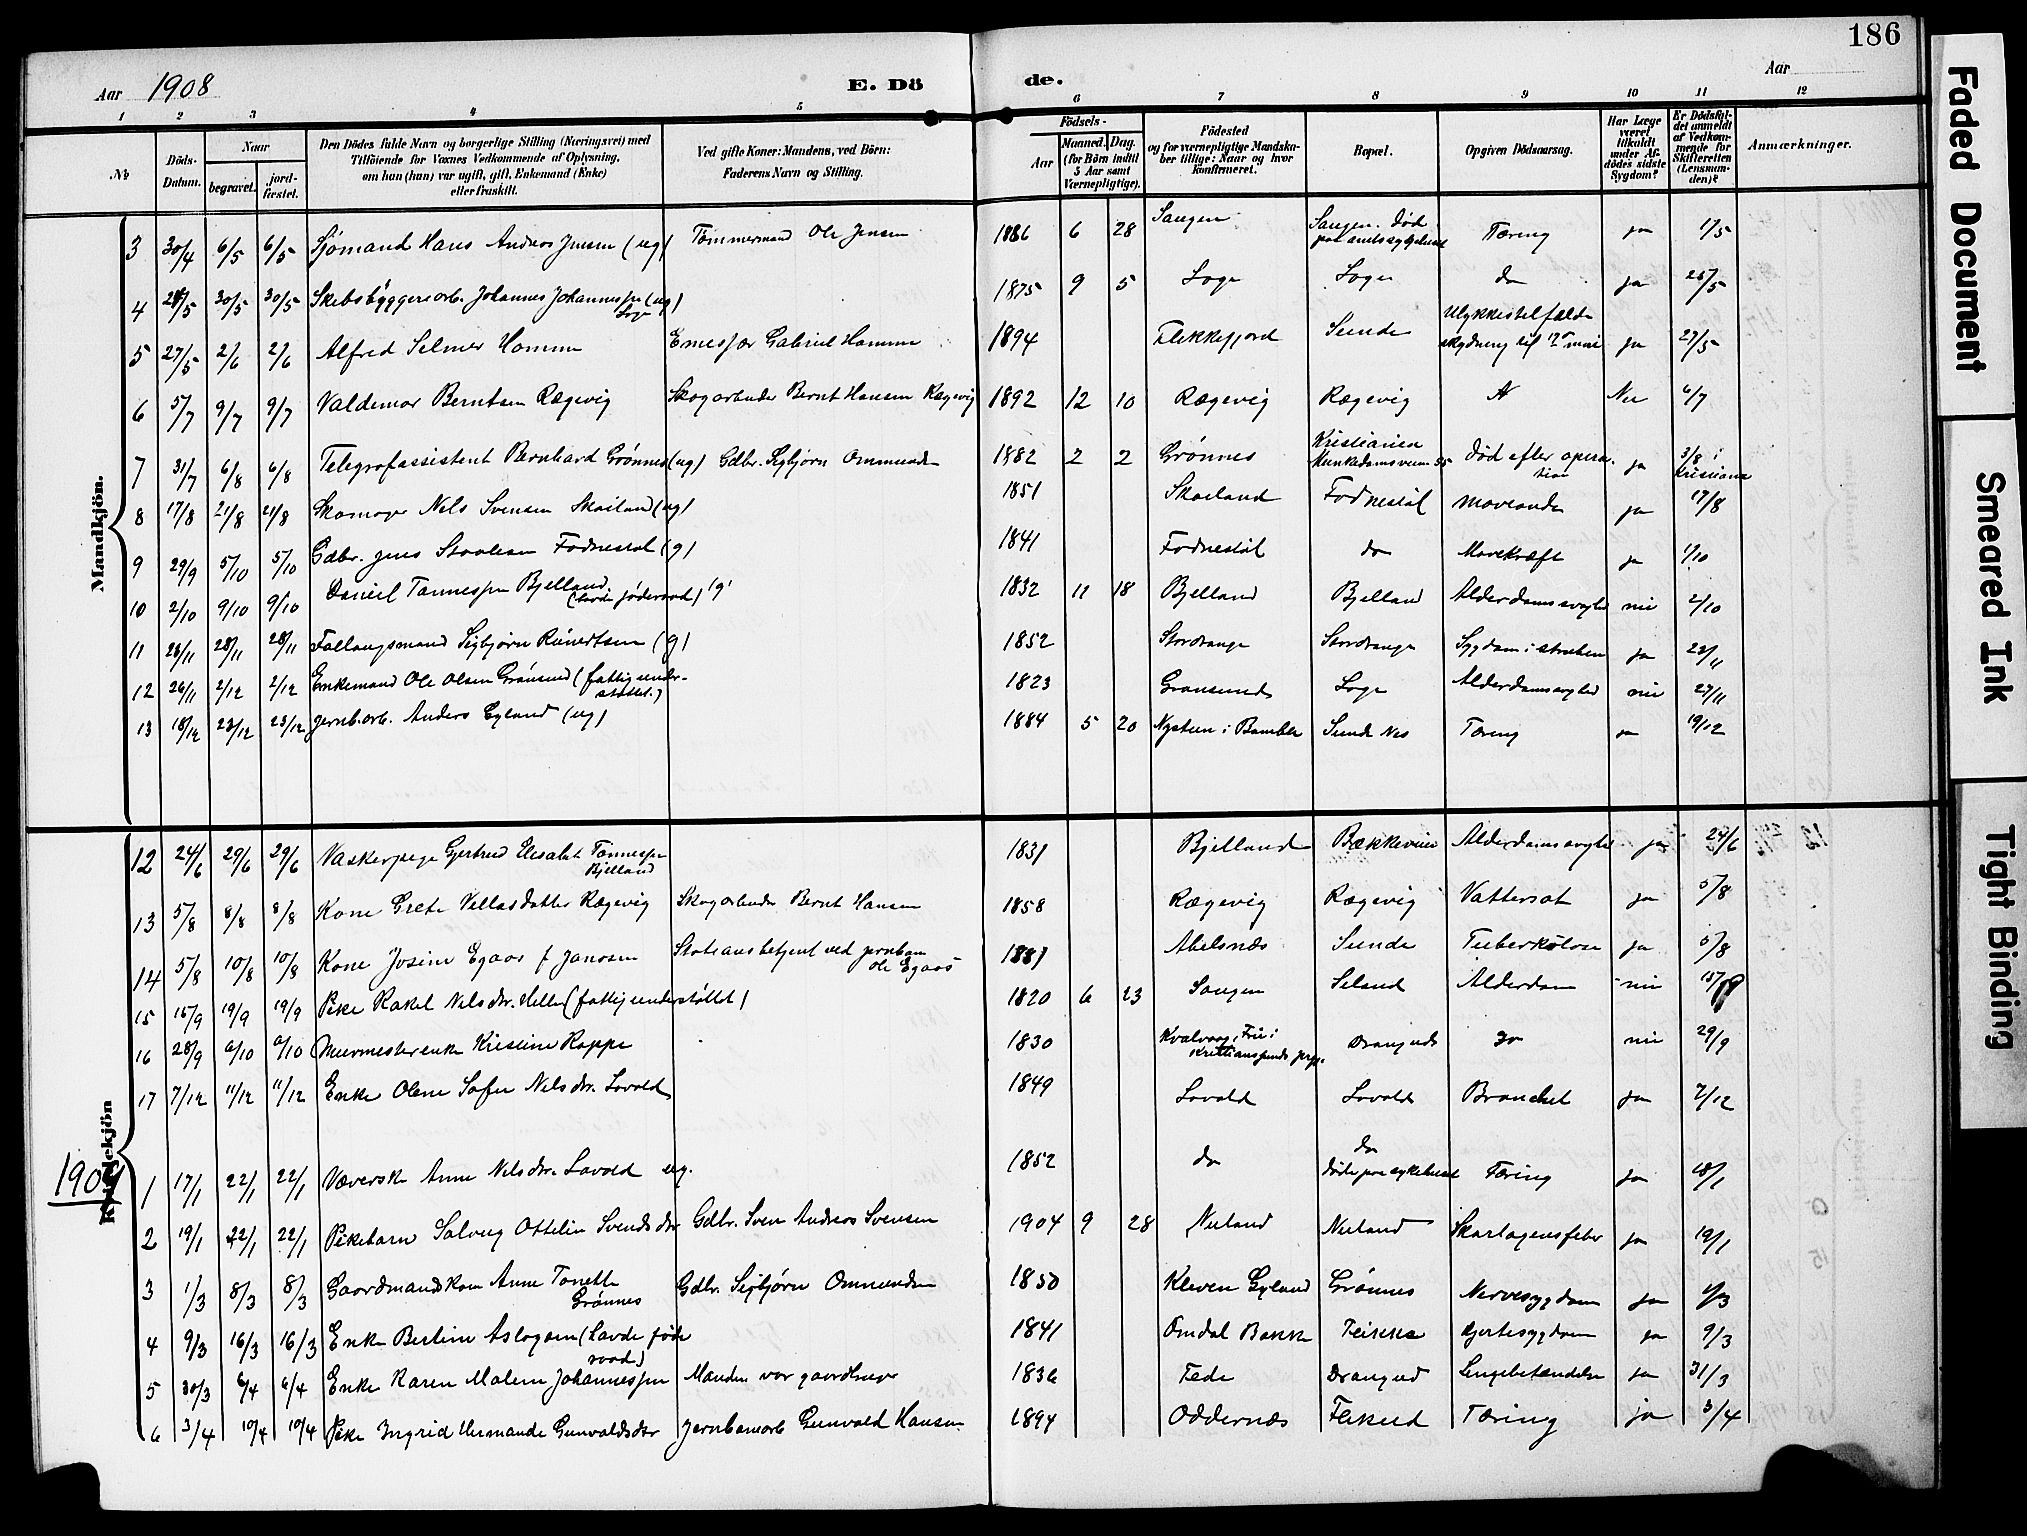 186
Aar 1908
E. Dö
de.
Aar
1 2 3 4 5 6 7 8 9 10 11 12
No
Döds-
Datum.
Naar
begravet.
jord-
fæstet.
Den Dödes fulde Navn og borgerlige Stilling (Næringsvei) med
Tilföiende for Voxnes Vedkommende af Oplysning,
om han (hun) var ugift, gift, Enkemand (Enke)
eller fraskilt.
Ved gifte Koner: Mandens, ved Börn:
Faderens Navn og Stilling.
Födsels-
Aar
Maaned. Dag.
(for Börn indtil
5 Aar samt
Værnepligtige).
Födested
og for værnepligtige Mandska-
ber tillige: Naar og hvor
konfirmeret.
Bopæl.
Opgiven Dödsaarsag.
Har Læge
været
tilkaldt
under Af-
dödes sidste
Sygdom?
Er Dödsfal-
det anmeldt
af Vedkom-
mende for
Skifteretten
(Lensman-
den)?
Anmærkninger.
Mandkjön.
3 30/4 6/5 6/5 Sjömand Hans Andreas Jensen (ug) Tömmermand Ole Jensen 1886 6 28 Saugen Saugen. Död paa amtssygehuset Tæring ja 1/5
4 /5 30/5 30/5 Skibsbyggerarb. Johannes Johannessen Loge (ug) 1875 9 5 Loge Loge do ja 25/5
5 27/5 2/6 2/6 Alfred Selmer Hamme Gabriel Hamme 1894 Flekkefjord Sunde Ulykkestilfælde ja 27/5
6 5/7 9/7 9/7 Valdemar Berntsen Rægevig Skogarbeider Bernt Hansen Rægevig 1892 12 10 Rægevig Rægevig Nei 6/7
7 31/7 6/8 6/8 Telegrafassistent Bernhard Grønnes (ug) Gdbr. Sigbjørn Ommundsen 1882 2 2 Grønnes Kristiania Munkedamsveien 35 Død efter operation ja 3/8 i Kristiania
8 17/8 21/8 21/8 Skomager Nels Svensen Skailand (ug) 1851 Skaeland Fodnestøl Maveonde ja 17/8
9 29/9 5/10 5/10 Gdbr. Jens Staalesen Fodnestøl (g) 1841 Fodnestøl do Mavekræft ja 1/10
10 2/10 9/10 9/10 Daniel Tønnessen Bjelland (lavde föderaad) 'g' 1832 11 18 Bjelland Bjelland Alderdomssvaghed nei 2/10
11 23/11 28/11 28/11 Fallaugsmand Sigbjørn Reinertsen (g) 1852 Stordrange Stordrange Sygdom i struben ja 23/11
12 26/11 2/12 2/12 Enkemand Ole Olsen Grönsund (fattigunderstøttet.) 1823 Gransund Loge Alderdomssvaghed nei 27/11
13 18/12 23/12 23/12 Jernb.arb. Anders Eyland (ug) 1884 5 20 Nysteen i Bamble Sunde Nes Tæring ja 19/12
Kvindekjön
12 24/6 29/6 29/6 Vaskerpige Gjertrud Elisabet Tønnessen Bjelland 1831 Bjelland Bækkeveien Alderdomssvaghed ja 24/6
13 5/8 8/8 8/8 Kone Grete Vellasdatter Rægevig Skogarbeider Bernt Hansen 1858 Rægevig Rægevig Vattersot ja 5/8
14 5/8 10/8 10/8 Kone Josine Egaas f Janssen Statsansbetjent ved jernban Ole Egaas 1881 Abelsnæs Sunde Tuberkulose ja 5/8
15 15/9 19/9 19/9 Pike Rakel Nilsdtr. Helle (fattigunderstøttet) 1820 6 23 Saugen Seland Alderdom nei 15/9
16 28/9 6/10 6/10 Murmesterenke Kristine Rappe 1830 Kvalvaag, Frei i Kristiansunds prgj. Drangeid do nei 29/9
17 7/12 11/12 11/12 Enke Olene Sofie Nilsdtr. Lavold 1849 Lavold Lavold Bronchit ja 7/12
1909
1 17/1 22/1 22/1 Væverske Anne Nilsdtr. Lavold ug. 1852 do do døde paa sykehuset Tæring ja 18/1
2 19/1 22/1 22/1 Pikebarn Solveig Ottelin Svendsdtr Gdbr. Sven Andreas Svensen 1904 9 28 Nuland Nuland Skarlagensfeber ja 19/1
3 1/3 8/3 8/3 Gaardmandskone Anne Tonette Grönnes Gdbr. Sigbjørn Ommundsen 1850 Kleven Gyland Grönnes Nervesygdom ja /3
4 9/3 16/3 16/3 Enke Bertine Aslagsen (Lavde föderaad) 1841 Omdal Bakke Feikke Hjertesygdom ja 9/3
5 30/3 6/4 6/4 Enke Karen Malene Johannessen Manden var gaardbruger 1836 Fede Drangeid Lungebetændelse ja 31/3
6 3/4 10/4 10/4 Pike Ingrid Hermande Gunvaldsdtr Jernbanearb Gunvald Hansen 1894 Oddernæs Flikeid Tæring ja 3/4
Faded Document
Smeared Ink
Tight Binding